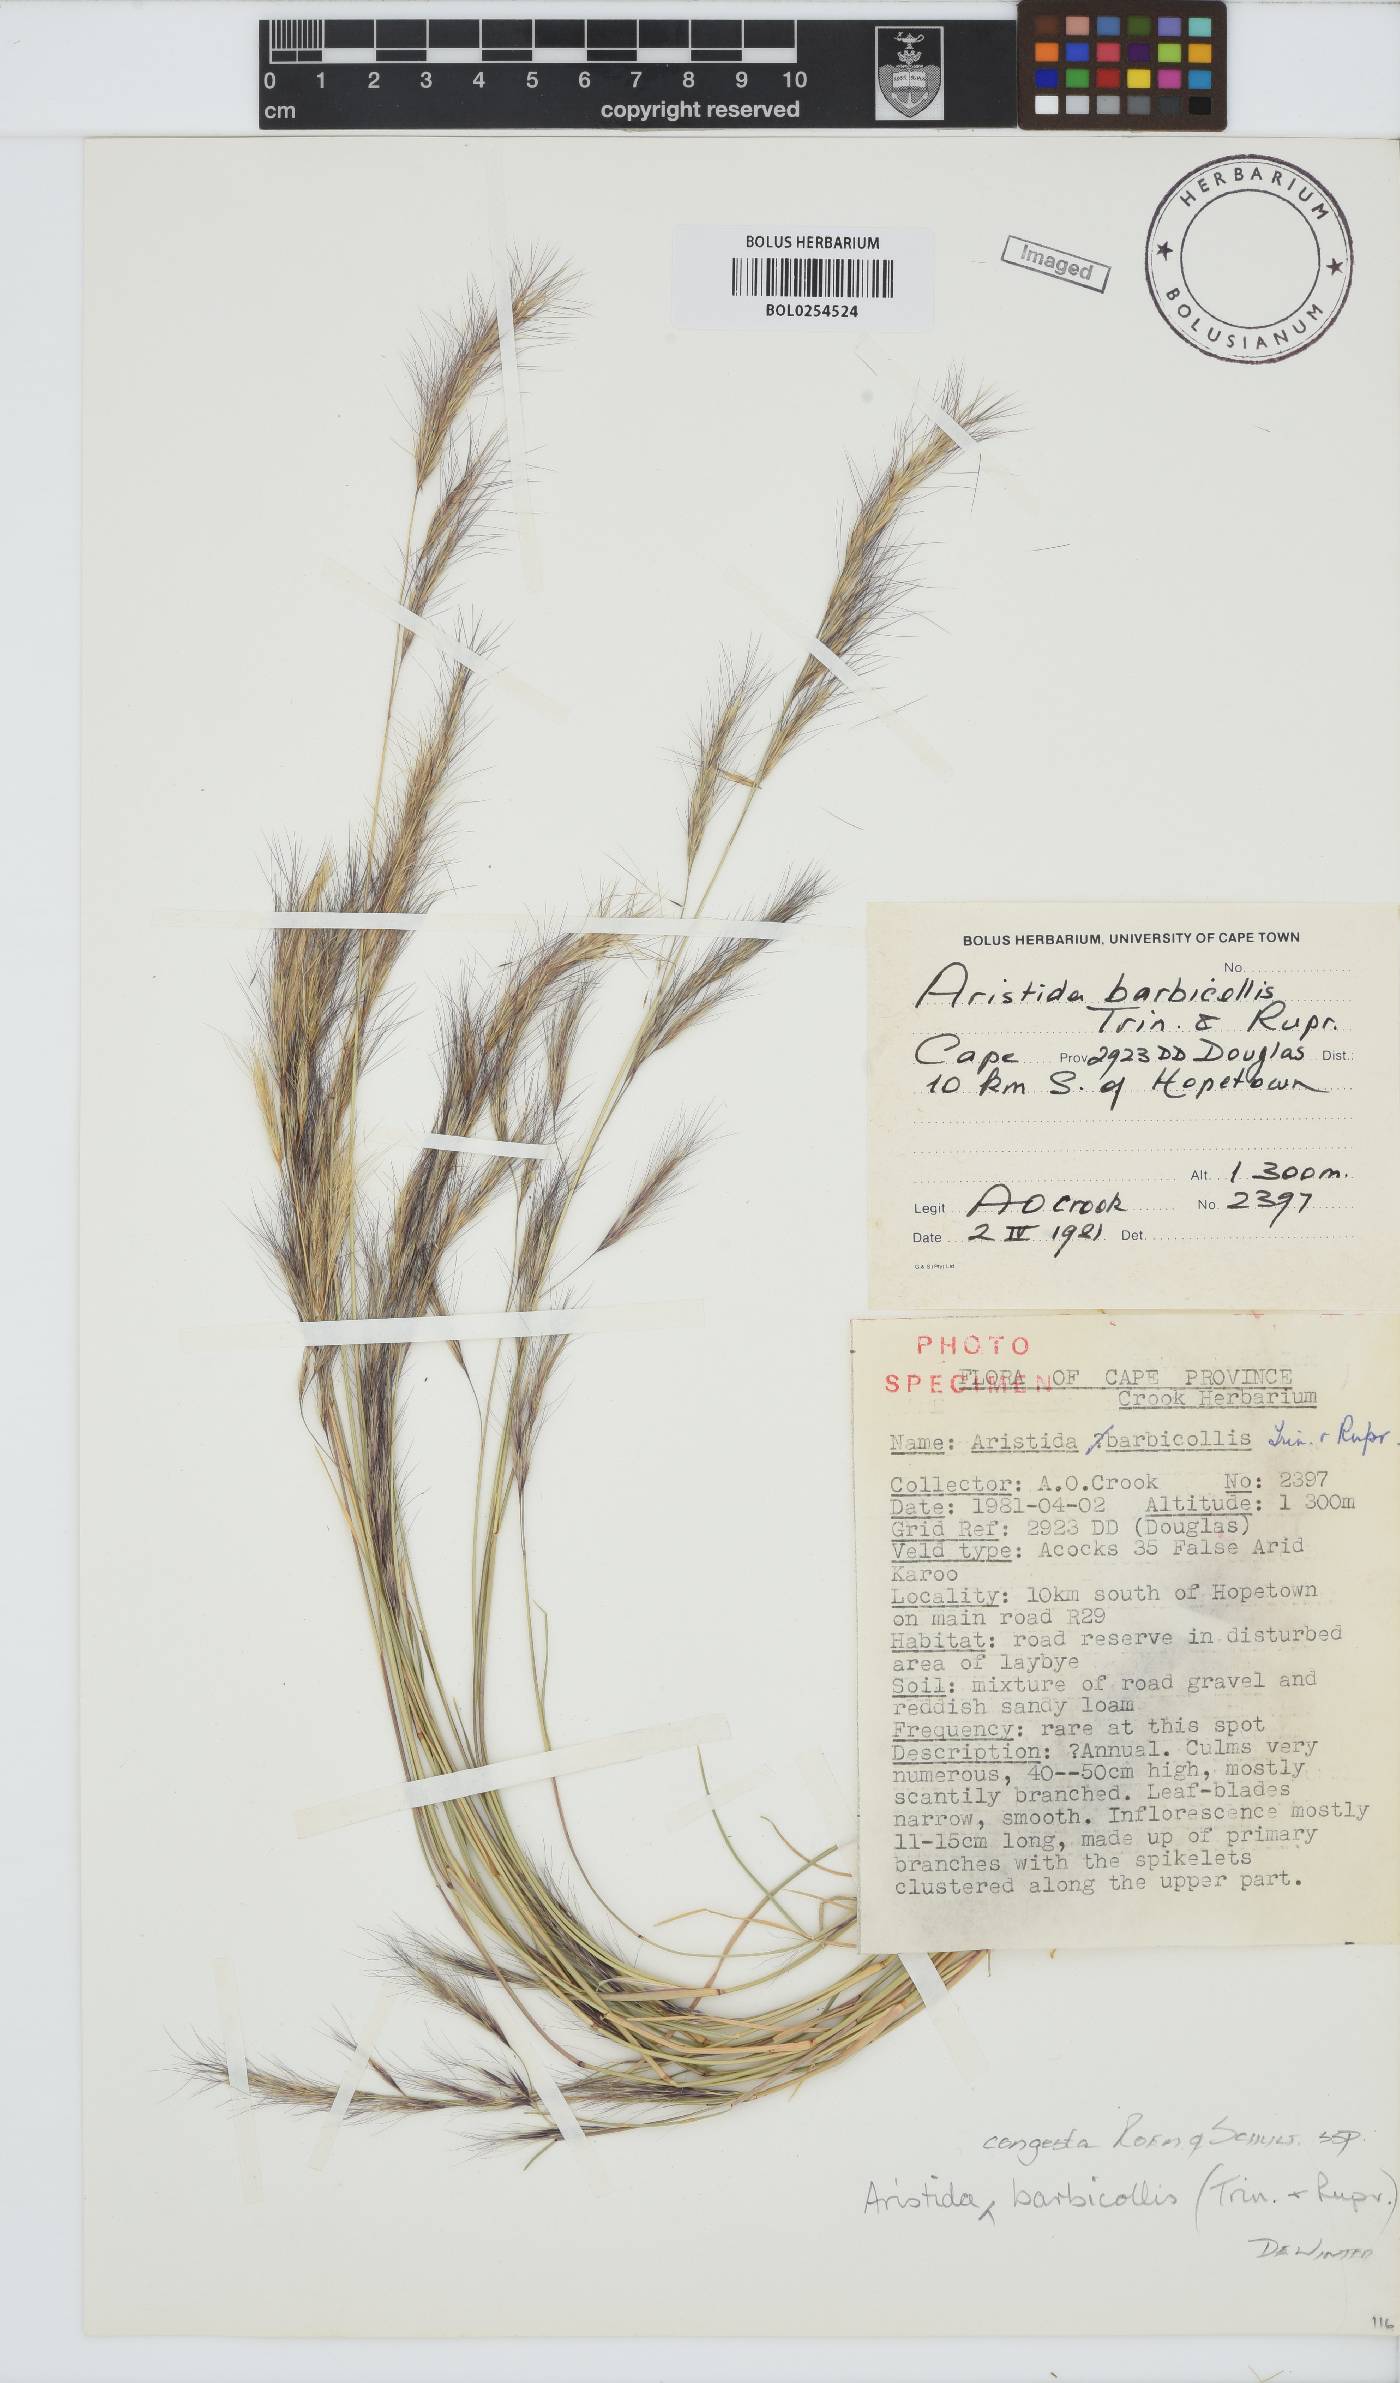 0 1 2 3 4 5 6 7 8 9 10
cm
copyright reserved
HERBARIUM
BOLUSIANUM
Imaged
BOLUS HERBARIUM
BOL0254524
BOLUS HERBARIUM, UNIVERSITY OF CAPE TOWN
No.
Aristida barbicollis
Trin. & Rupr.
Cape Prov. 2923 DD Douglas Dist.:
10 km S. of Hopetown
Alt. 1 300m.
Legit A O Crook No. 2397
Date 2 IV 1981 Det.
G & S (Pty) Ltd
PHOTO
SPECIMEN
FLORA OF CAPE PROVINCE
Crook Herbarium
Name: Aristida ?barbicollis Trin. & Rupr.
Collector: A.O.Crook No: 2397
Date: 1981-04-02 Altitude: 1 300m
Grid Ref: 2923 DD (Douglas)
Veld type: Acocks 35 False Arid
Karoo
Locality: 10km south of Hopetown
on main road R29
Habitat: road reserve in disturbed
area of laybye
Soil: mixture of road gravel and
reddish sandy loam
Frequency: rare at this spot
Description: ?Annual. Culms very
numerous, 40--50cm high, mostly
scantily branched. Leaf-blades
narrow, smooth. Inflorescence mostly
11-15cm long, made up of primary
branches with the spikelets
clustered along the upper part.
congesta Roem & Schult. ssp.
Aristida barbicollis (Trin. & Rupr.)
De Winter
116